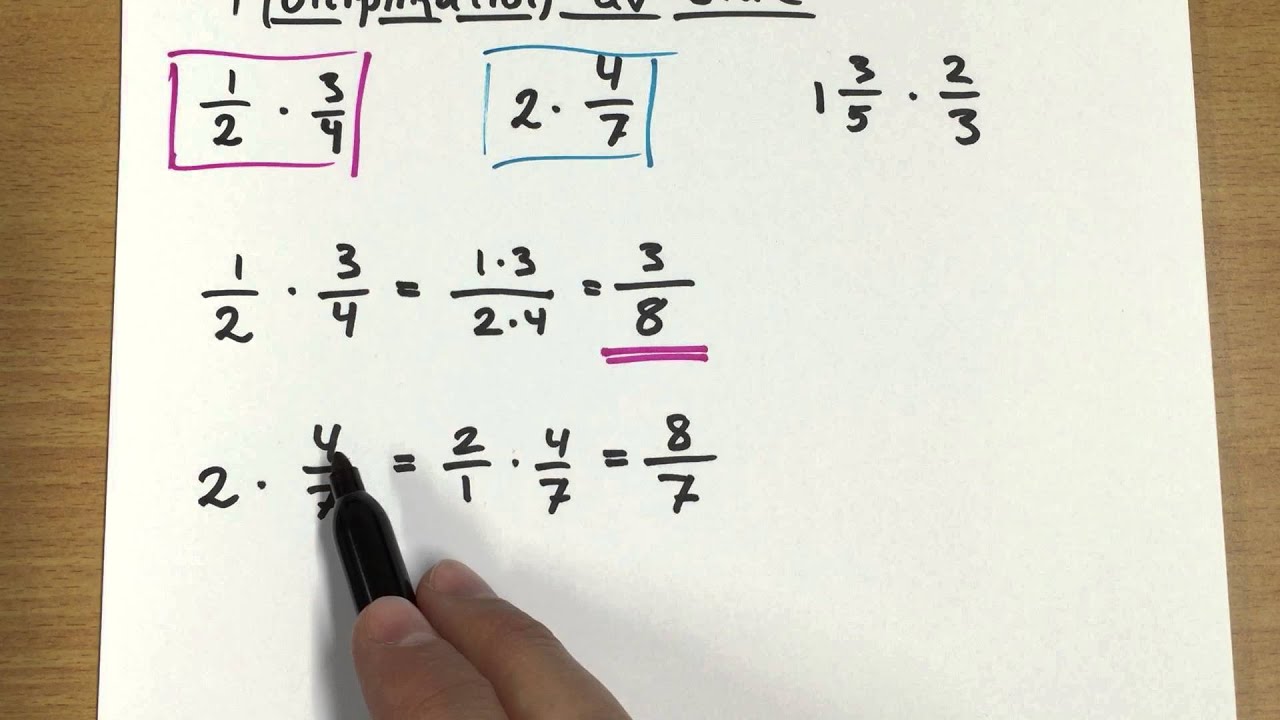 av
1/2 · 3/4   2 · 4/7   1 3/5 · 2/3
1/2 · 3/4 = 1·3/2·4 = 3/8
2 · 4/7 = 2/1 · 4/7 = 8/7